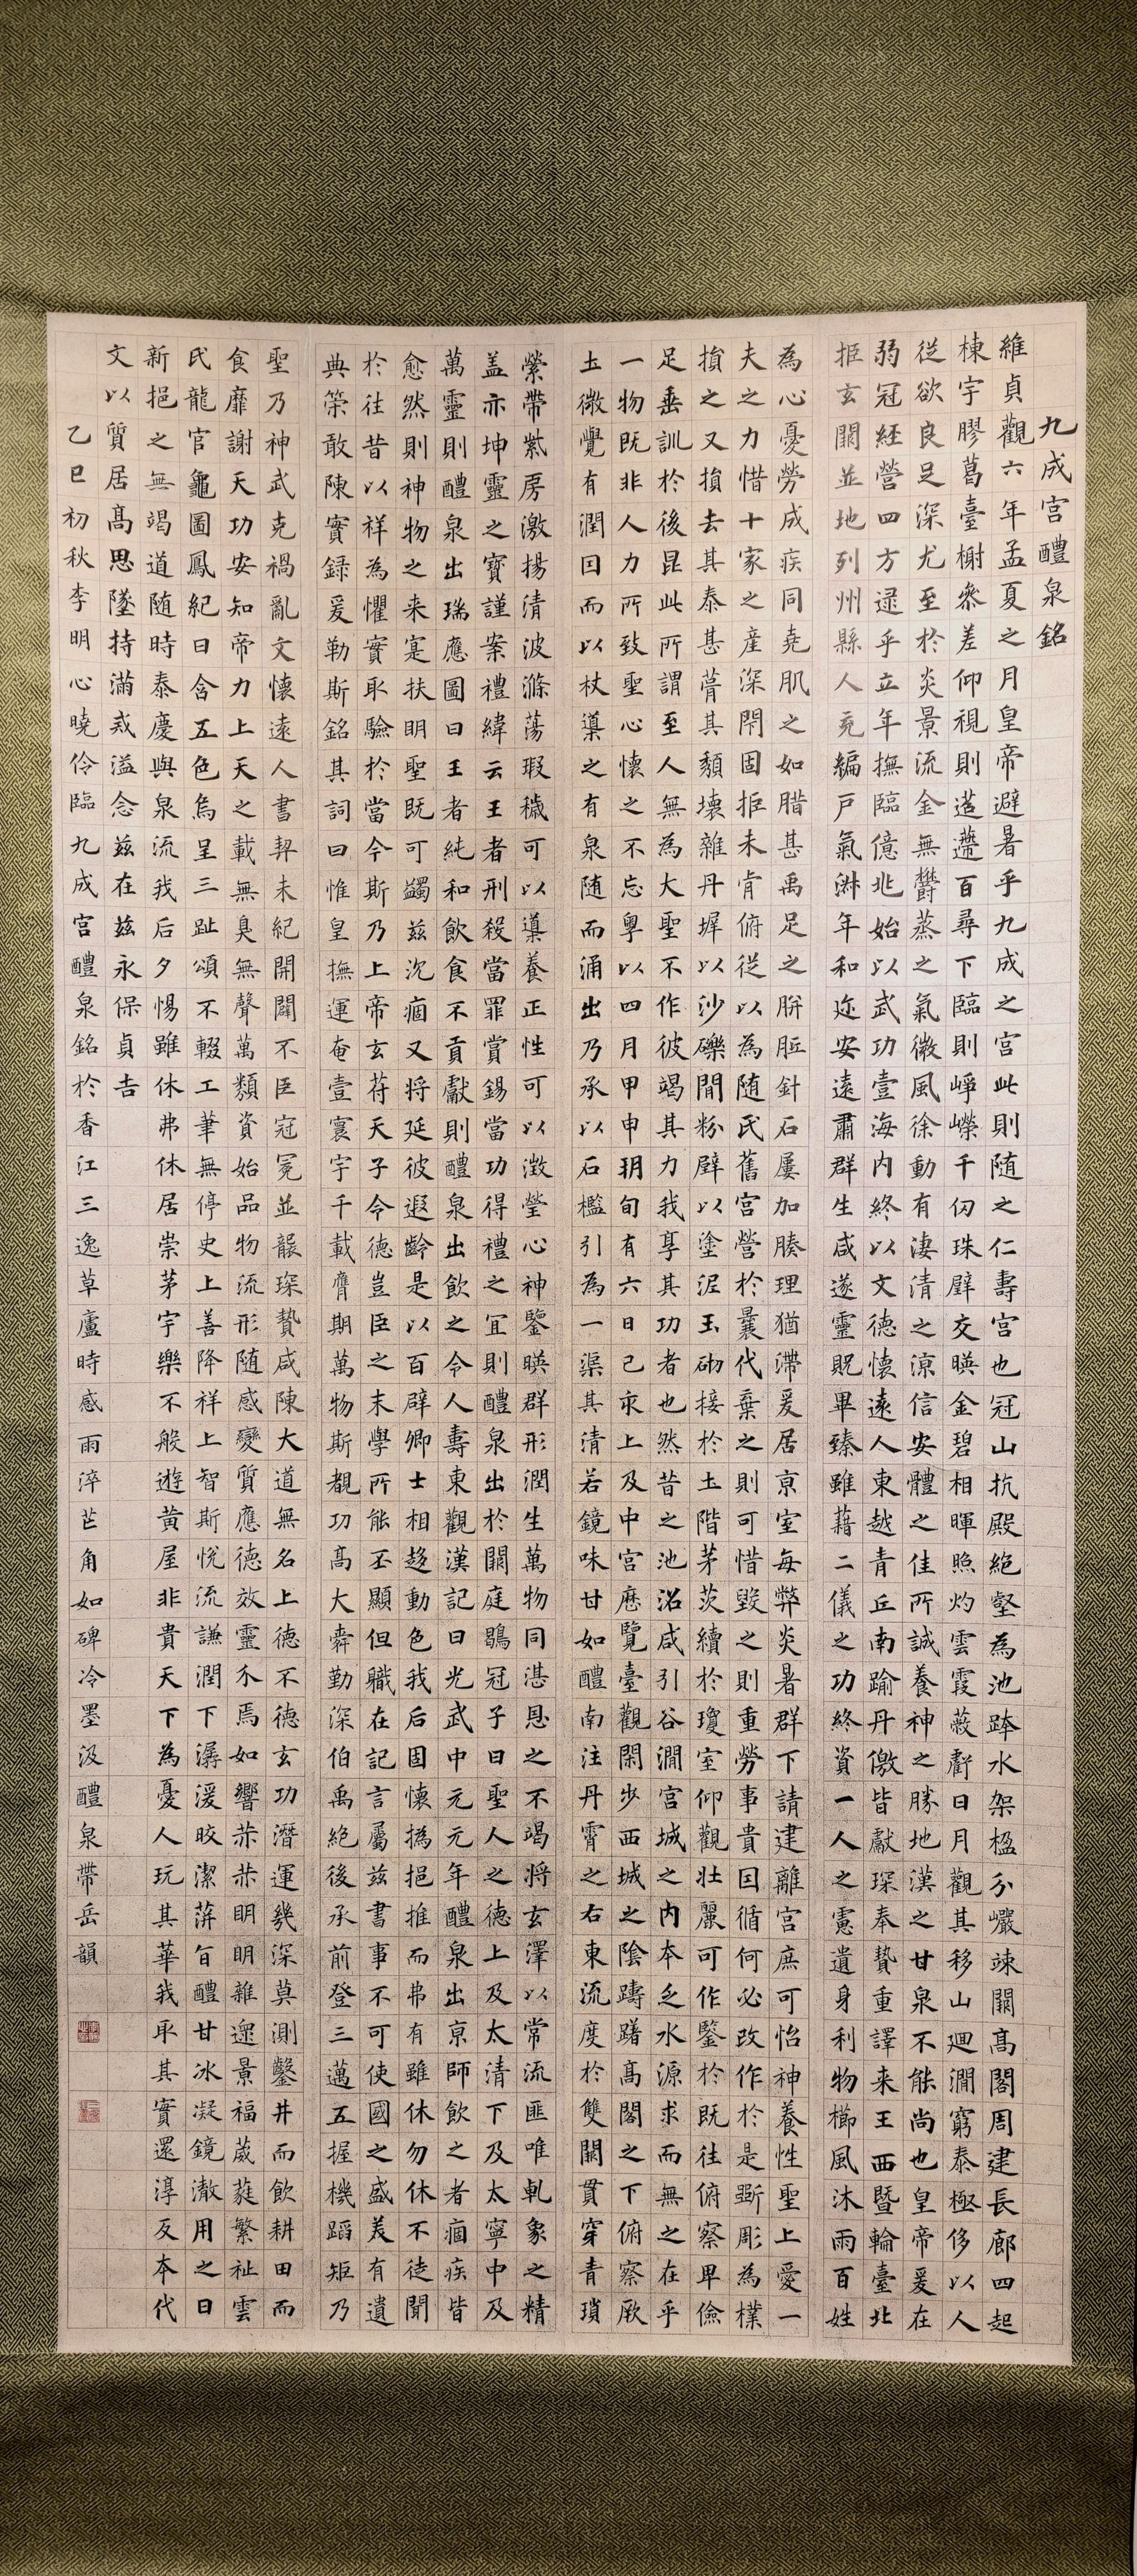 九成宮醴泉銘
維貞觀六年孟夏之月皇帝避暑乎九成之宮此則随之仁壽宮也冠山抗殿絶壑為池跨水架楹分巗竦闕高閣周建長廊四起
棟宇膠葛臺榭參差仰視則迢遰百尋下臨則崢嶸千仞珠璧交暎金碧相暉照灼雲霞蔽虧日月觀其移山廻澗窮泰極侈以人
從欲良足深尤至於炎景流金無欝蒸之氣微風徐動有淒清之涼信安體之佳所誠養神之勝地漢之甘泉不能尚也皇帝爰在
弱冠經營四方逮乎立年撫臨億兆始以武功壹海内終以文德懷遠人東越青丘南踰丹儌皆獻琛奉贄重譯来王西曁輪臺北
拒玄闕並地列州縣人充編戸氣淋年和迩安遠肅群生咸遂靈貺畢臻雖藉二儀之功終資一人之慮遺身利物櫛風沐雨百姓
為心憂勞成疾同堯肌之如腊甚禹足之胼胝針石屢加腠理猶滯爰居京室每弊炎暑群下請建離宮庶可怡神養性聖上愛一
夫之力惜十家之産深閇固拒未肯俯從以為随氏舊宮營於曩代棄之則可惜毀之則重勞事貴因循何必改作於是斲彫為樸
損之又損去其泰甚葺其頽壞雜丹墀以沙礫間粉壁以塗泥玉砌接於土階茅茨續於瓊室仰觀壮麗可作鑒於既往俯察卑儉
足垂訓於後昆此所謂至人無為大聖不作彼竭其力我享其功者也然昔之池沼咸引谷澗宮城之内本乏水源求而無之在乎
一物既非人力所致聖心懷之不忘粤以四月甲申朔旬有六日己亥上及中宮歷覽臺觀閑步西城之陰躊躇高閣之下俯察厥
土微覺有潤因而以杖導之有泉随而涌出乃承以石檻引為一渠其清若鏡味甘如醴南注丹霄之右東流度於雙闕貫穿青瑣
縈帶紫房激揚清波滌蕩瑕穢可以導養正性可以澂瑩心神鑒暎群形潤生萬物同湛恩之不竭将玄澤以常流匪唯乹象之精
盖亦坤靈之寶謹案禮緯云王者刑殺當罪賞錫當功得禮之宜則醴泉出於闕庭鶡冠子曰聖人之德上及太清下及太寧中及
萬靈則醴泉出瑞應圖曰王者純和飲食不貢獻則醴泉出飲之令人壽東觀漢記曰光武中元元年醴泉出京師飲之者痼疾皆
愈然則神物之来寔扶明聖既可蠲兹沉痼又将延彼遐齡是以百辟卿士相趍動色我后固懷撝挹推而弗有雖休勿休不徒聞
於往昔以祥為懼實取驗於當今斯乃上帝玄符天子令德豈臣之末學所能丕顯但職在記言屬兹書事不可使國之盛美有遺
典策敢陳實録爰勒斯銘其詞曰惟皇撫運奄壹寰宇千載膺期萬物斯覩功高大舜勤深伯禹絶後承前登三邁五握機蹈矩乃
聖乃神武克禍亂文懷遠人書契未紀開闢不臣冠冕並襲琛贄咸陳大道無名上德不德玄功潛運幾深莫測鑿井而飲耕田而
食靡謝天功安知帝力上天之載無臭無聲萬類資始品物流形随感變質應德效靈介焉如響赫赫明明雜遝景福葳蕤繁祉雲
氏龍官龜圖鳳紀日含五色烏呈三趾頌不輟工筆無停史上善降祥上智斯悦流謙潤下潺湲皎潔蓱旨醴甘冰凝鏡澈用之日
新挹之無竭道随時泰慶與泉流我后夕惕雖休弗休居崇茅宇樂不般遊黄屋非貴天下為憂人玩其華我取其實還淳反本代
文以質居高思墜持滿戒溢念兹在兹永保貞吉
乙巳初秋李明心曉伶臨九成宮醴泉銘於香江三逸草廬時感雨淬芒角如碑冷墨汲醴泉帶岳韻